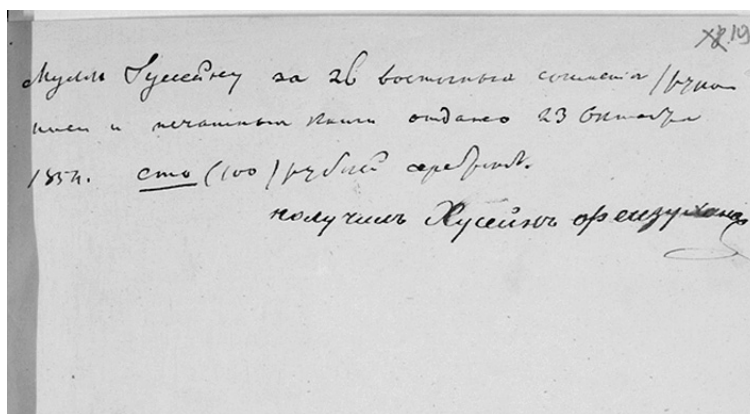 19
Муллѣ Гуссейну за 26 восточныхъ сочиненія /рукописи
и печатныя книги отдано 23 Октября
185 г. сто (100) рублей серебромъ.
получилъ Хусейнъ Феизхановъ